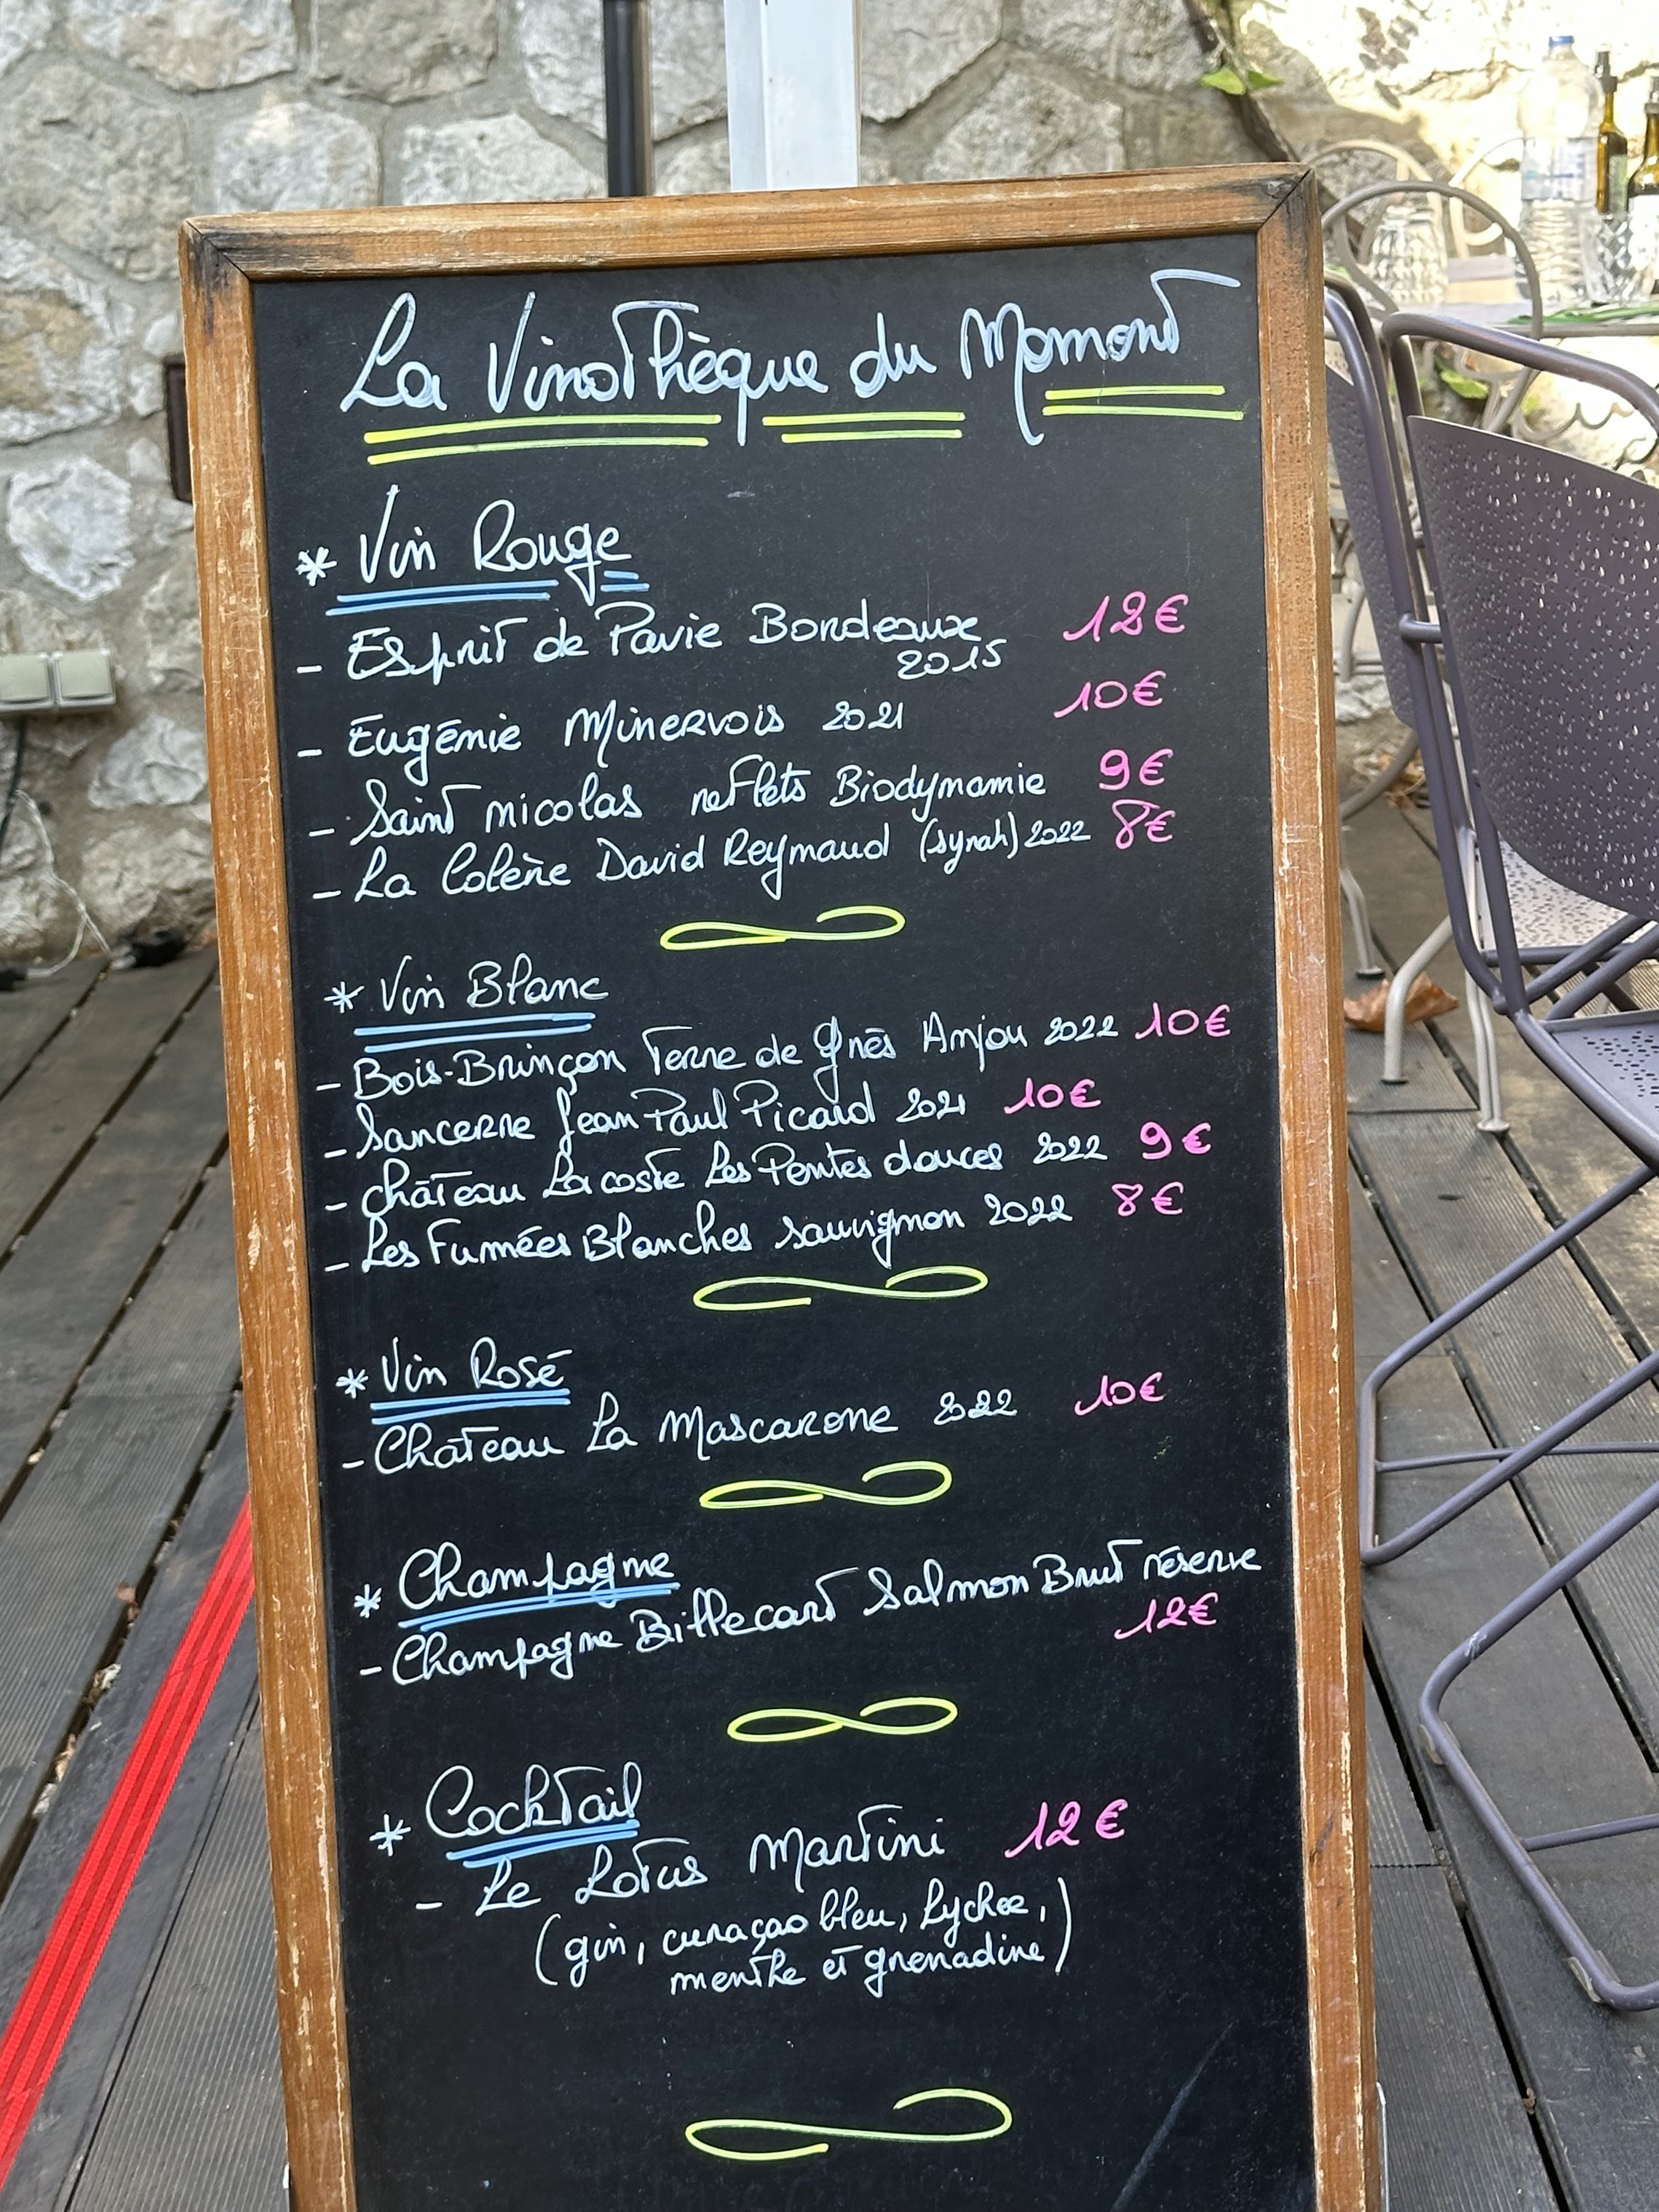 La Vinothèque du Moment
* Vin Rouge
- Esprit de Pavie Bordeaux 12€
2015
- Eugénie Minervois 2021 10€
- Saint Nicolas reflets Biodynamie 9€
- La Colère David Reynaud (syrah) 2022 8€
* Vin Blanc
- Bois-Brinçon Terre de Grès Anjou 2022 10€
- Sancerre Jean Paul Picard 2021 10€
- Château La coste Les Pentes douces 2022 9€
- Les Fumées Blanches sauvignon 2022 8€
* Vin Rosé
- Château La Mascarone 2022 10€
* Champagne
- Champagne Billecart Salmon Brut réserve
12€
* Cocktail
- Le Lotus Martini 12€
(gin, curaçao bleu, lychee,
menthe et grenadine)